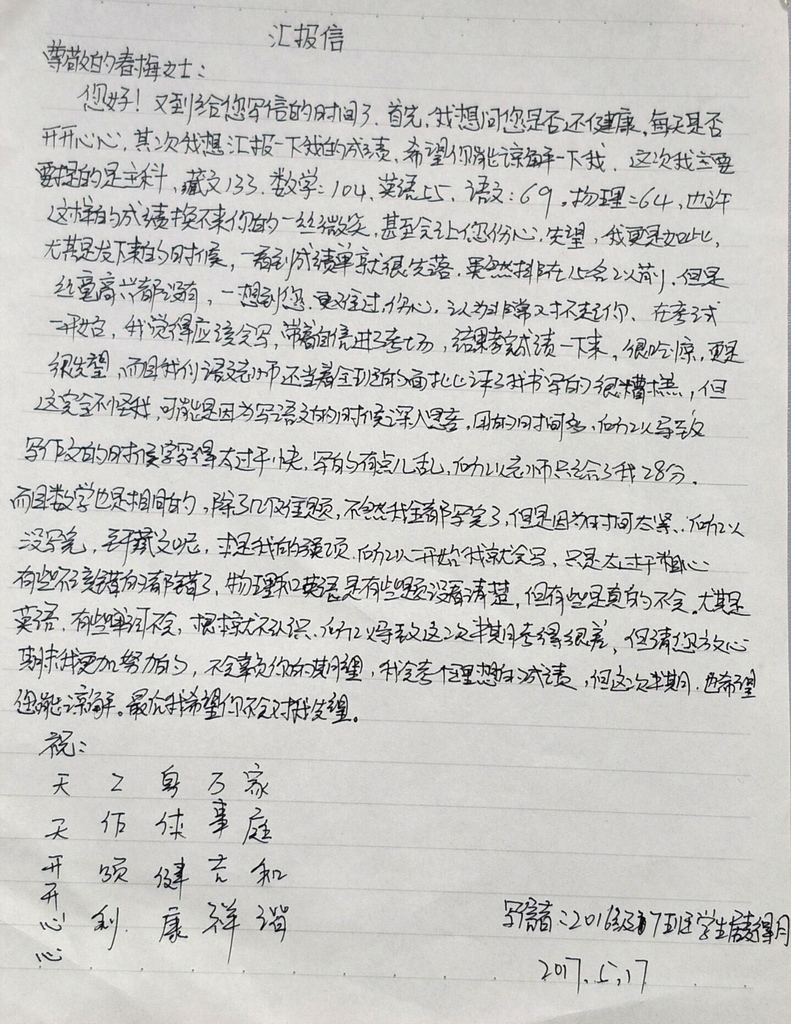 汇报信
尊敬的春梅女士：
您好！又到给您写信的时间了。首先，我想问您是否还健康，每天是否
开开心心，其次我想汇报一下我的成绩，希望你能谅解一下我，这次我主要
要提的是主科，藏文133．数学：104．英语55．语文：69．物理：64，也许
这样的成绩换不来你的一丝微笑，甚至会让您伤心，失望，我更是如此，
尤其是发下来的时候，一看到成绩单就很失落，虽然排在15名以前，但是
丝毫高兴都没有，一想到您．更难过，伤心，认为非常对不起你．在考试
一开始，我觉得应该会写，带着自信进了考场，结果考完成绩一下来，很吃惊，更是
很失望，而且我们语文老师还当着全班的面批评了我书写的很糟糕，但
这完全不怪我，可能是因为写语文的时候深入思考，用的时间多，所以导致
写作文的时候字写得太过于快，写的有点儿乱，所以老师只给了我28分．
而且数学也是相同的，除了几个难题，不然我全都写完了，但是因为时间太紧．所以
没写完，至于藏文呢，求是我的强项．所以一开始我就会写，只是太过于粗心
有些不该错的都错了，物理和英语是有些题没看清楚，但有些是真的不会．尤其是
英语．有些单词不会，根本就不认识．所以导致这一次半期考得很差，但请您放心
期末我更加努力的，不会辜负你的期望，我会考个理想的成绩，但这次半期．也希望
您能谅解。最后我希望你不会对我失望。
祝：
天天开开心心
工作顺利．
身体健康
万事吉祥
家庭和谐
写信者：2016级7班学生得月
2017.5.17